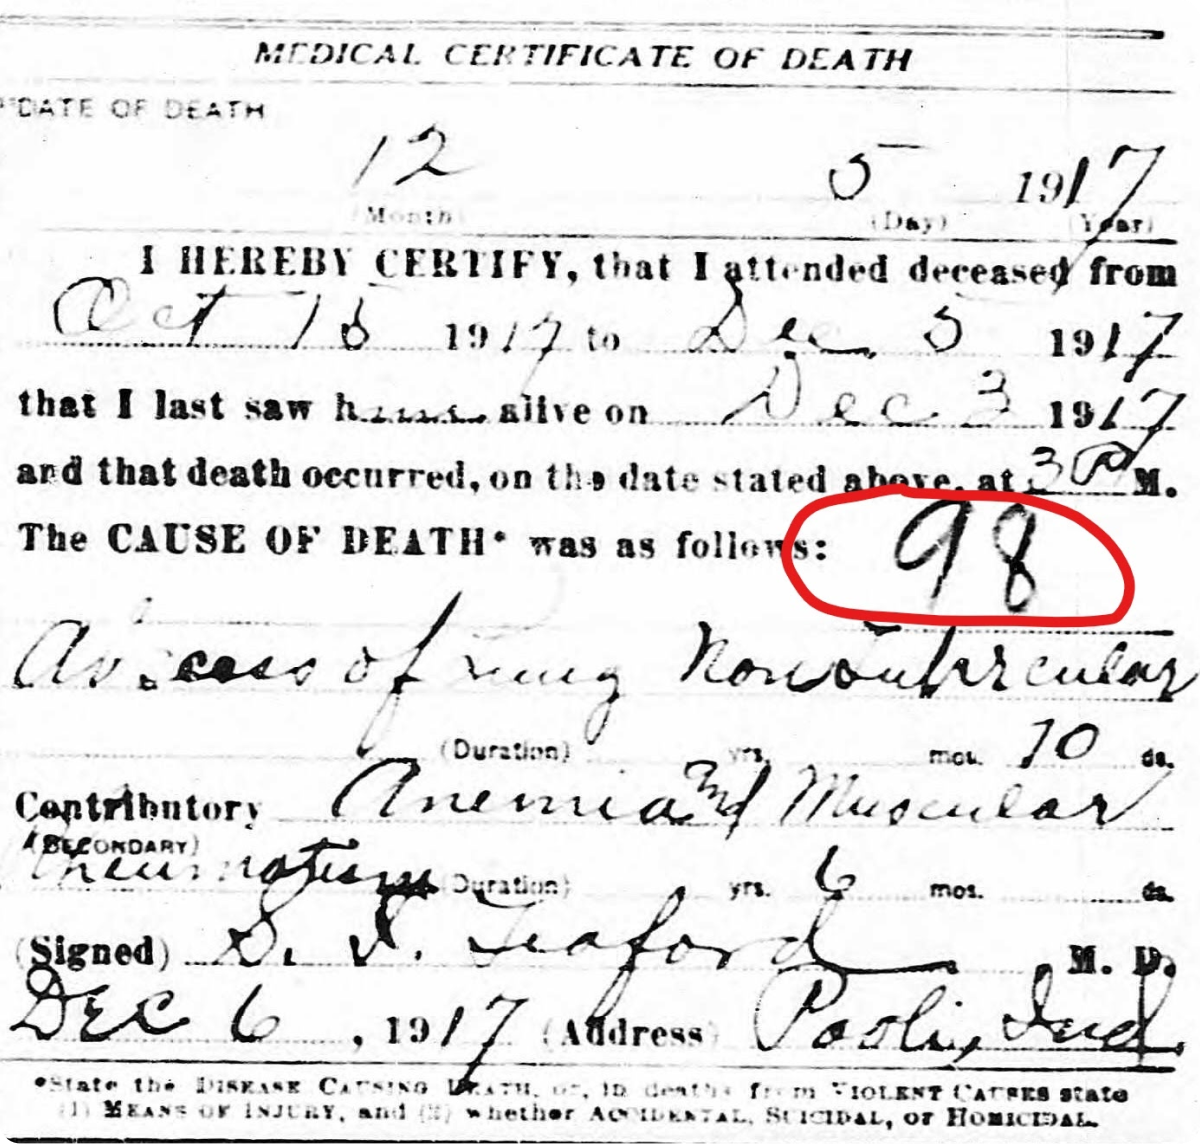 MEDICAL CERTIFICATE OF DEATH
DATE OF DEATH
12 5 1917
(Month) (Day) (Year)
I HEREBY CERTIFY, that I attended deceased from
Oct 1917 to Dec. 5 1917
that I last saw h alive on Dec 3 1917
and that death occurred, on the date stated above, at 3 P M.
The CAUSE OF DEATH* was as follows: 98
Abscess of Lung Nontubercular
(Duration) yrs. mos. 10 ds.
Contributory Anemia and Muscular
(SECONDARY)
Rheumatism (Duration) yrs. 6 mos. ds.
(Signed) Teaford M. D.
DEC 6, 1917 (Address) Paoli, Ind.
*State the DISEASE CAUSING DEATH, or, in deaths from VIOLENT CAUSES state
(1) MEANS OF INJURY, and (2) whether ACCIDENTAL, SUICIDAL, or HOMICIDAL.